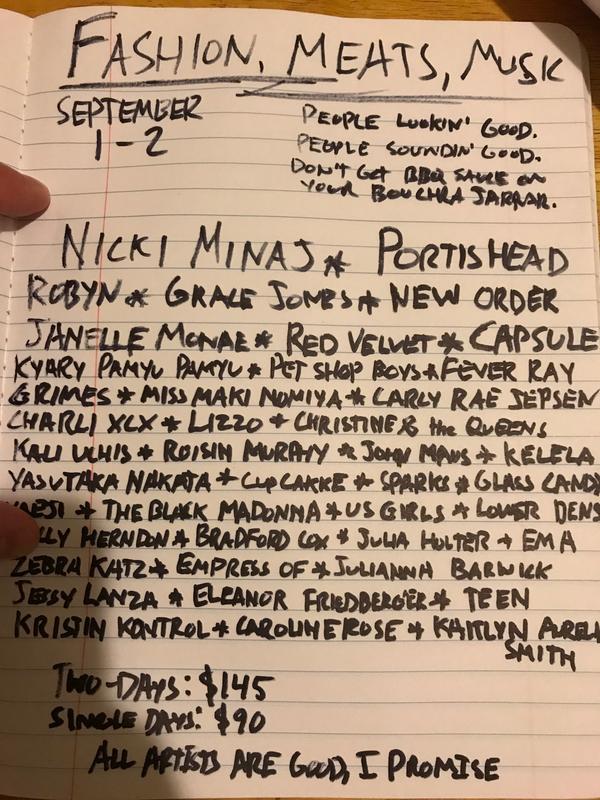 FASHION, MEATS, MUSIC
SEPTEMBER
1-2
PEOPLE LOOKIN' GOOD.
PEOPLE SOUNDIN' GOOD.
DON'T GET BBQ SAUCE ON
YOUR BOUCHRA JARRAR.
NICKI MINAJ * PORTISHEAD
ROBYN * GRACE JONES * NEW ORDER
JANELLE MONAE * RED VELVET * CAPSULE
KYARY PAMYU PAMYU * PET SHOP BOYS * FEVER RAY
GRIMES * MISS MAKI NOMIYA * CARLY RAE JEPSEN
CHARLI XCX * LIZZO * CHRISTINE & the QUEENS
KALI UCHIS * ROISIN MURPHY * JOHN MAUS * KELELA
YASUTAKA NAKATA * CUPCAKKE * SPARKS * GLASS CANDY
YAEJI * THE BLACK MADONNA * US GIRLS * LOWER DENS
LLY HERNDON * BRADFORD COX * JULIA HOLTER * EMA
ZEBRA KATZ * EMPRESS OF * JULIANNA BARWICK
JESSY LANZA * ELEANOR FRIEDBERGER * TEEN
KRISTIN KONTROL * CAROLINE ROSE * KAITLYN AURELIA
SMITH
TWO-DAYS: $145
SINGLE DAYS: $90
ALL ARTISTS ARE GOOD, I PROMISE